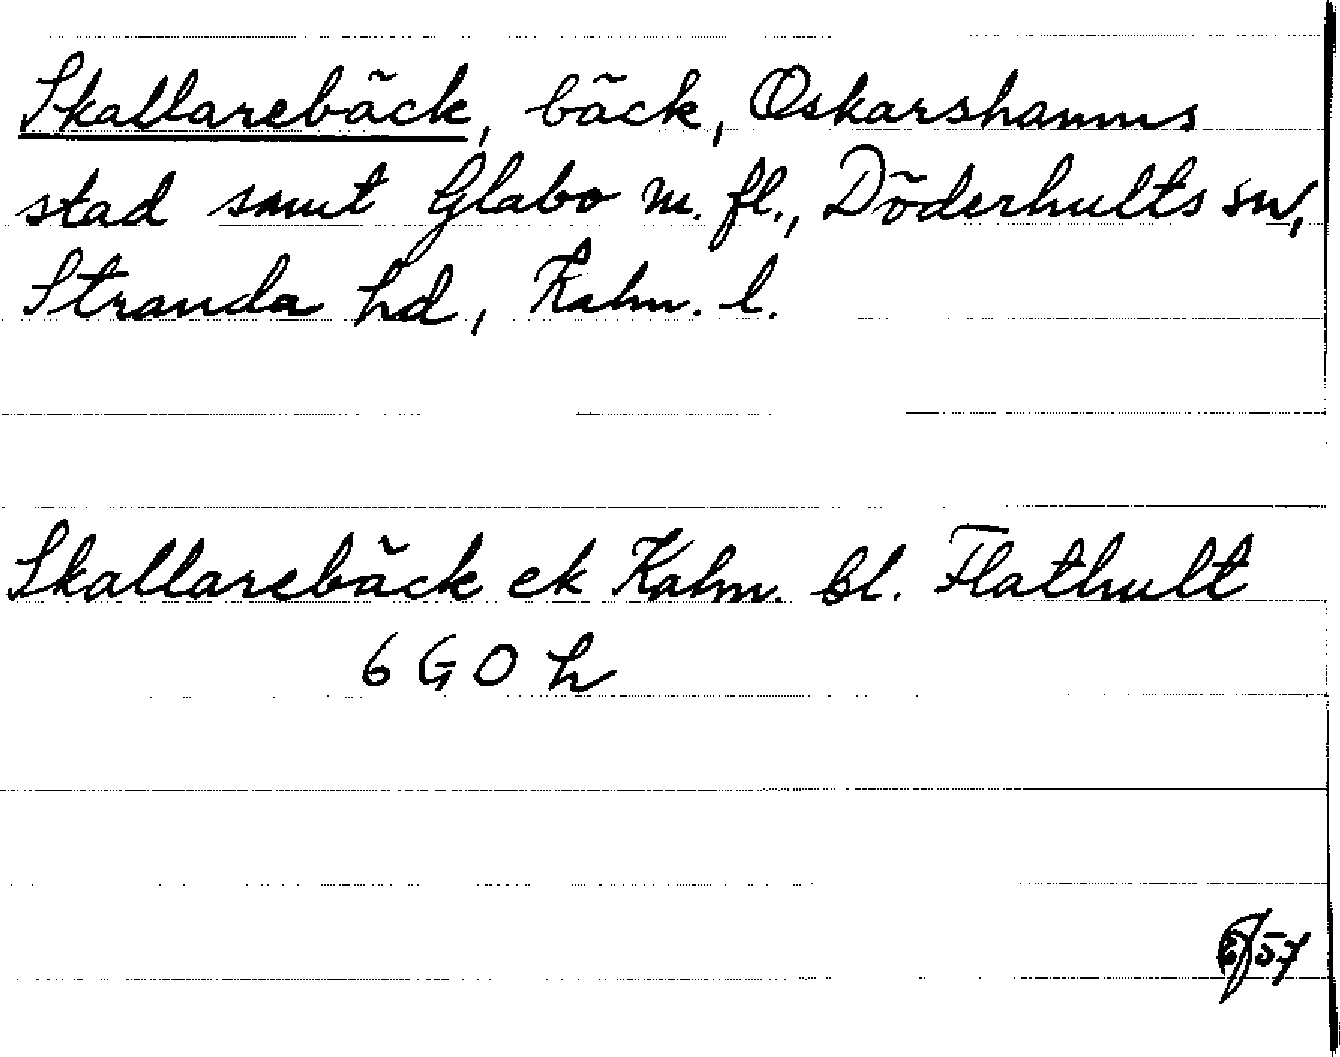 Skallarebäck, bäck, Oskarshamns
stad samt Glabo m. fl., Döderhults sn,
Stranda hd, Kalm. l.
Skallarebäck ek Kalm. bl. Flathult
6 G O h
57